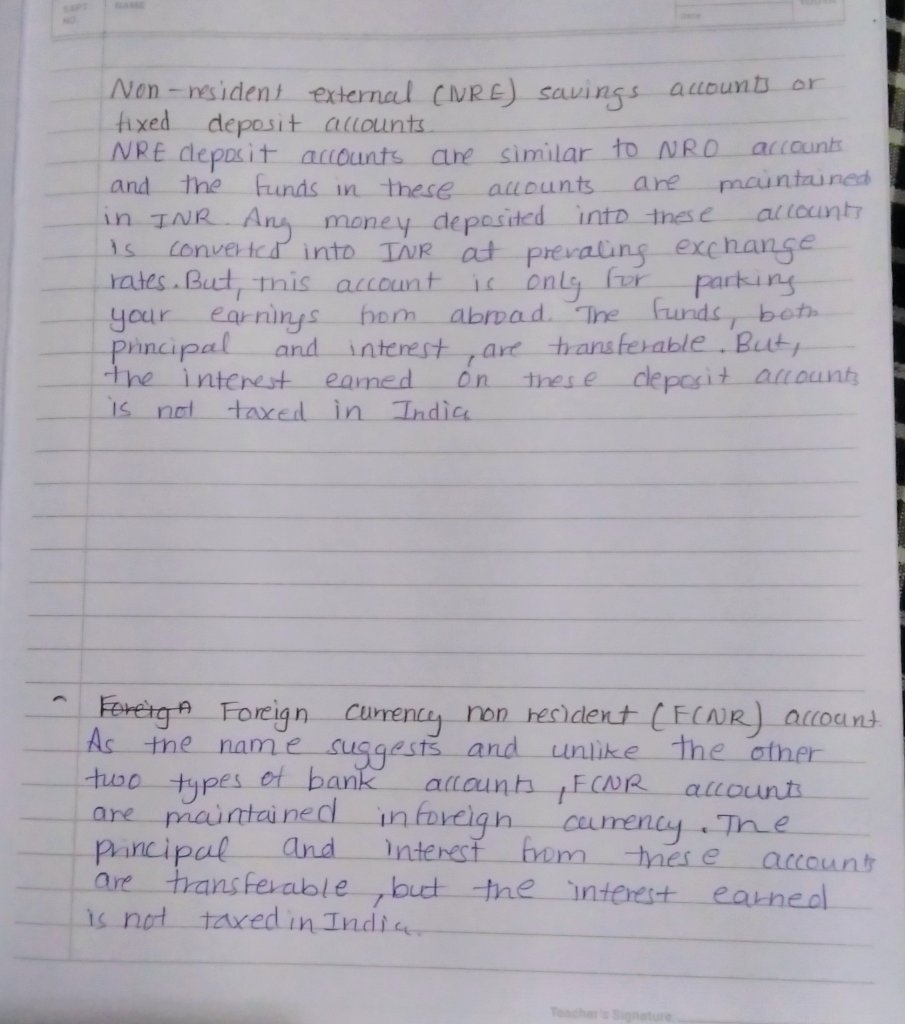 NAME
Non-resident external (NRE) savings accounts or
fixed deposit accounts.
NRE deposit accounts are similar to NRO accounts
and the funds in these accounts are maintained
in INR. Any money deposited into these accounts
is converted into INR at prevaling exchange
rates. But, this account is only for parking
your earnings from abroad. The funds, both
principal and interest, are transferable. But,
the interest earned on these deposit accounts
is not taxed in India
Foreign Foreign currency non resident (FCNR) account.
As the name suggests and unlike the other
two types of bank accounts, FCNR accounts
are maintained in foreign currency. The
principal and interest from these accounts
are transferable, but the interest earned
is not taxed in India.
Teacher's Signature